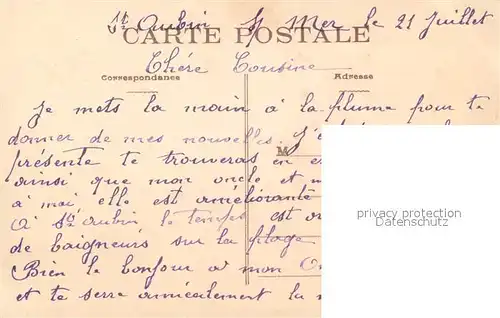 St Aubin S/ Mer le 21 Juillet
CARTE POSTALE
Chère Cousine
Correspondance
Adresse
Je mets la main à la plume pour te
donner de mes nouvelles. J'e
M
présente te trouveras en
ainsi que mon oncle et m
à moi elle est améliorante
A St Aubin le temps est
de baigneurs sur la plage
Bien le bonjour a mon
et te serre amicalement la
privacy protection
Datenschutz